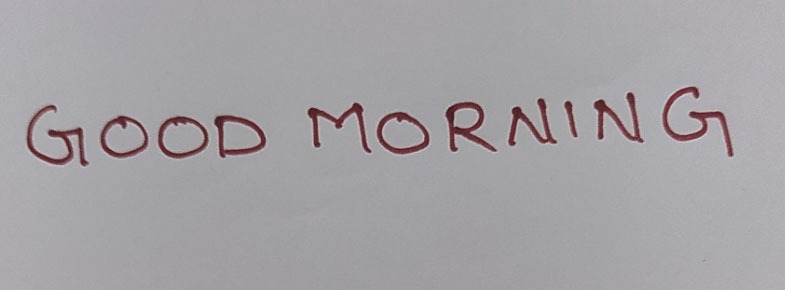 GOOD MORNING